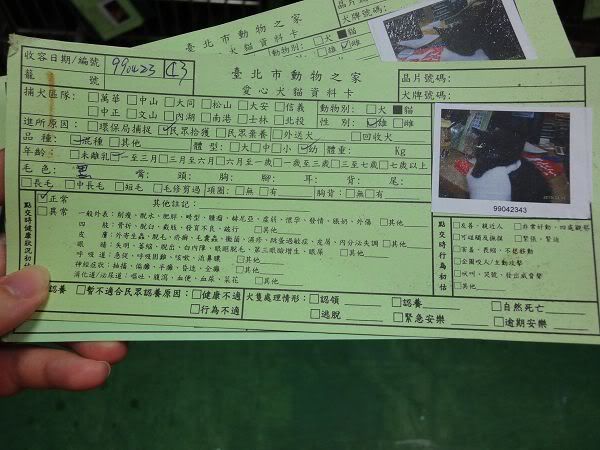 臺北市動物之家
犬貓資料卡
晶片號碼:
犬牌號碼:
動物別: □犬
收容日期/編號 990423 C3
籠 號
臺北市動物之家
愛心犬貓資料卡
晶片號碼:
犬牌號碼:
捕犬區隊: □萬華 □中山 □大同 □松山 □大安 □信義 動物別: □犬 ■貓
□中正 □文山 □內湖 □南港 □士林 □北投 性 別: ☑雄 □雌
進所原因: □環保局捕捉 ☑民眾拾獲 □民眾棄養 □外送犬 □回收犬
品 種: ☑混種 □其他 體 型: □大 □中 □小 ☑幼 體重: Kg
年齡: □未離乳 ☑一至三月 □三月至六月 □六月至一歲 □一歲至三歲 □三至七歲 □七歲以上
毛 色: 黑 嘴: 頭: 胸: 腳: 耳: 背: 尾:
□長毛 □中長毛 □短毛 □毛修剪過 項圈: □無 □有 胸背: □無 □有
99042343
點交時健康狀況初估
☑正常
□異常
其他註記:
一般外表: 削瘦、脫水、肥胖、畸型、腫瘤、赫尼亞、虛弱、懷孕、發情、脹奶、外傷 □其他
四 肢: 骨折、脫臼、截肢、發育不良、跛行 □其他
皮 膚: 外寄生蟲、脫毛、疥癬、毛囊蟲、黴菌、濕疹、跳蚤過敏症、皮屑、內分泌失調 □其他
眼 睛: 失明、萎縮、脫出、白內障、眼瞼脫毛、第三眼瞼增生、眼屎 □其他
呼 吸 道: 急促、呼吸困難、咳嗽、流鼻膿 □其他
神經症狀: 抽搐、偏癱、半癱、昏迷、全癱 □其他
消化道/泌尿道: 嘔吐、腹瀉、血便、血尿、菜花 □其他
點交時行為初估
□友善、親近人 □非常好動、四處觀察
□可碰觸及撫摸 □緊張、緊迫
□害羞、畏縮、不想移動
□企圖咬人/主動攻擊
□吠叫、哭號、發出威脅聲
□其他
認養 □暫不適合民眾認養原因: □健康不適
□行為不適
犬隻處理情形: □認領 □認養 □自然死亡
□逃脫 □緊急安樂 □逾期安樂